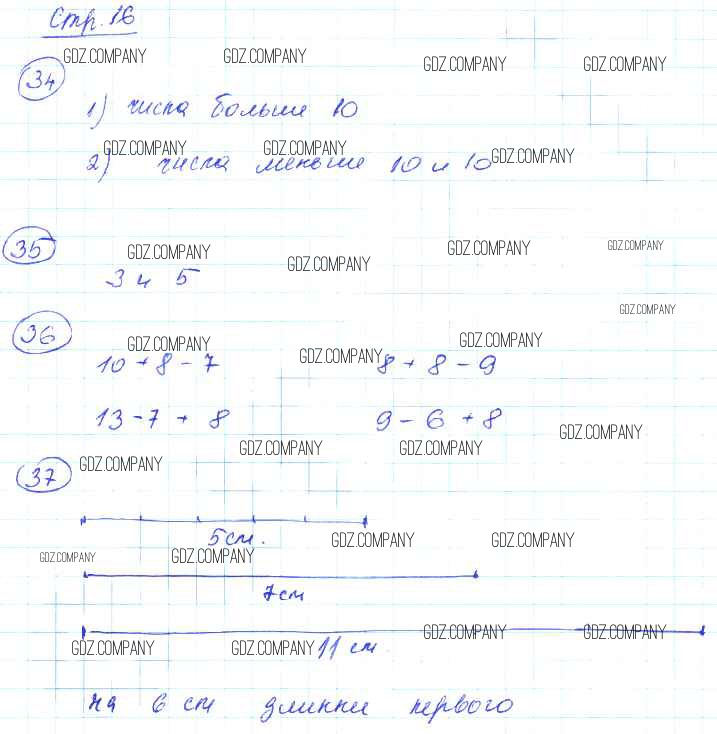 Стр. 16
GDZ.COMPANY GDZ.COMPANY GDZ.COMPANY GDZ.COMPANY
34
1) числа больше 10
GDZ.COMPANY GDZ.COMPANY GDZ.COMPANY
2) числа меньше 10 и 10
35
GDZ.COMPANY GDZ.COMPANY GDZ.COMPANY GDZ.COMPANY
3 и 5
GDZ.COMPANY
36
GDZ.COMPANY GDZ.COMPANY GDZ.COMPANY
10 + 8 - 7 8 + 8 - 9
13 - 7 + 8 9 - 6 + 8
GDZ.COMPANY
GDZ.COMPANY GDZ.COMPANY
37 GDZ.COMPANY
5 см.
GDZ.COMPANY GDZ.COMPANY GDZ.COMPANY GDZ.COMPANY
7 см
GDZ.COMPANY GDZ.COMPANY
GDZ.COMPANY GDZ.COMPANY 11 см
на 6 см длинне первого